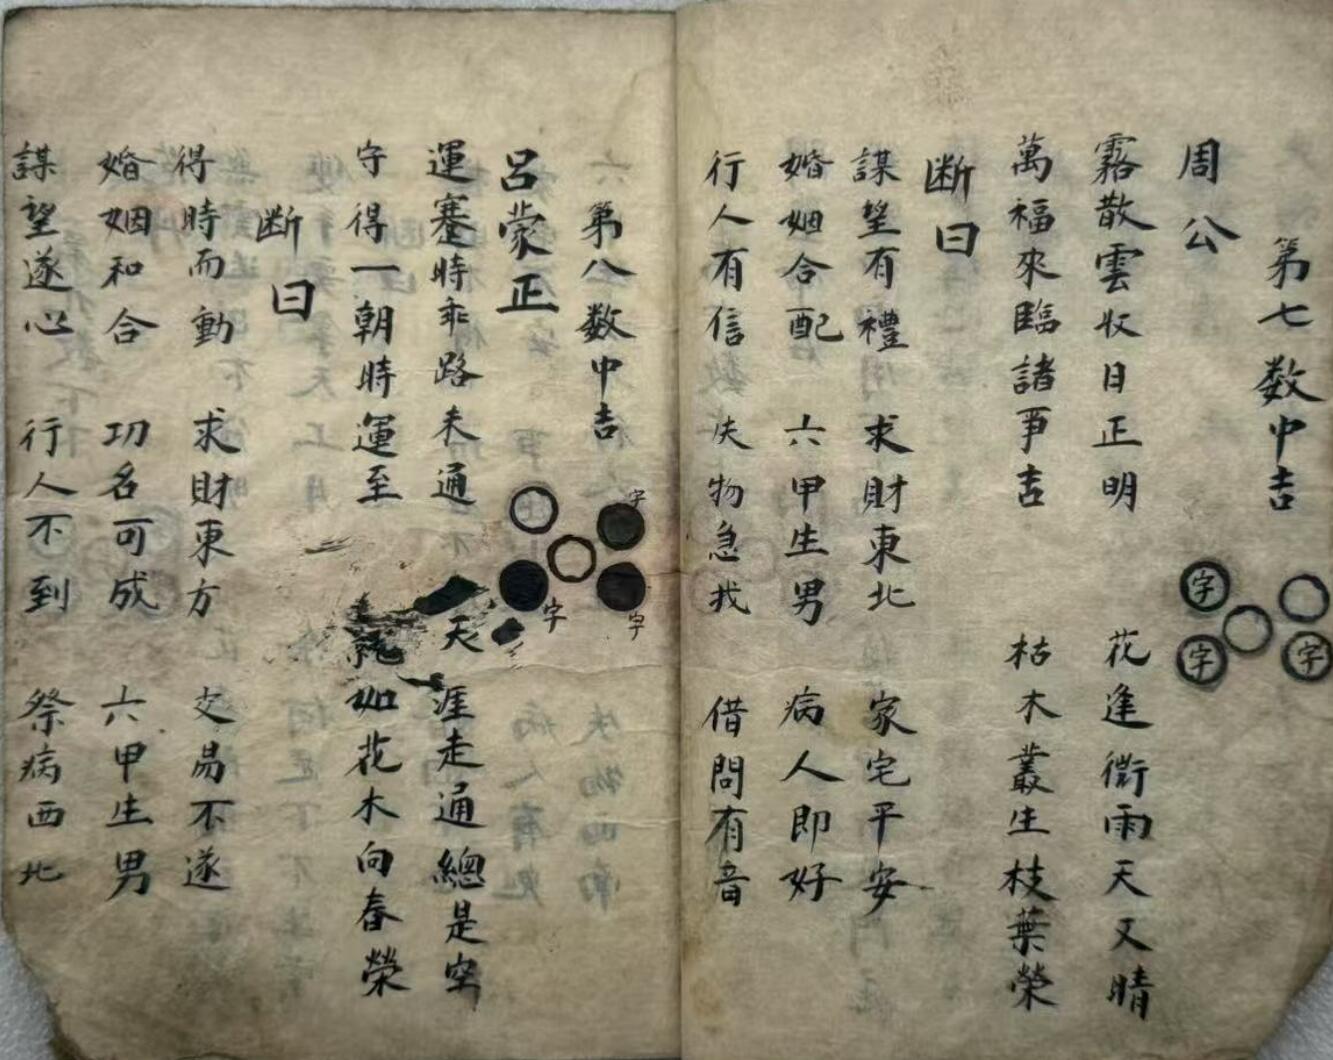 第七数中吉
周公
霧散雲收日正明 花逢衝雨天又晴
萬福來臨諸事吉 枯木叢生枝葉榮
断曰
謀望有禮 求財東北 家宅平安
婚姻合配 六甲生男 病人即好
行人有信 失物急找 借問有音
六第八数中吉
呂蒙正
運蹇時乖路未通 天涯走通總是空
守得一朝時運至 如花木向春榮
断曰
得時而動 求財東方 交易不遂
婚姻和合 功名可成 六甲生男
謀望遂心 行人不到 祭病西北
字
字
字
字
字
字